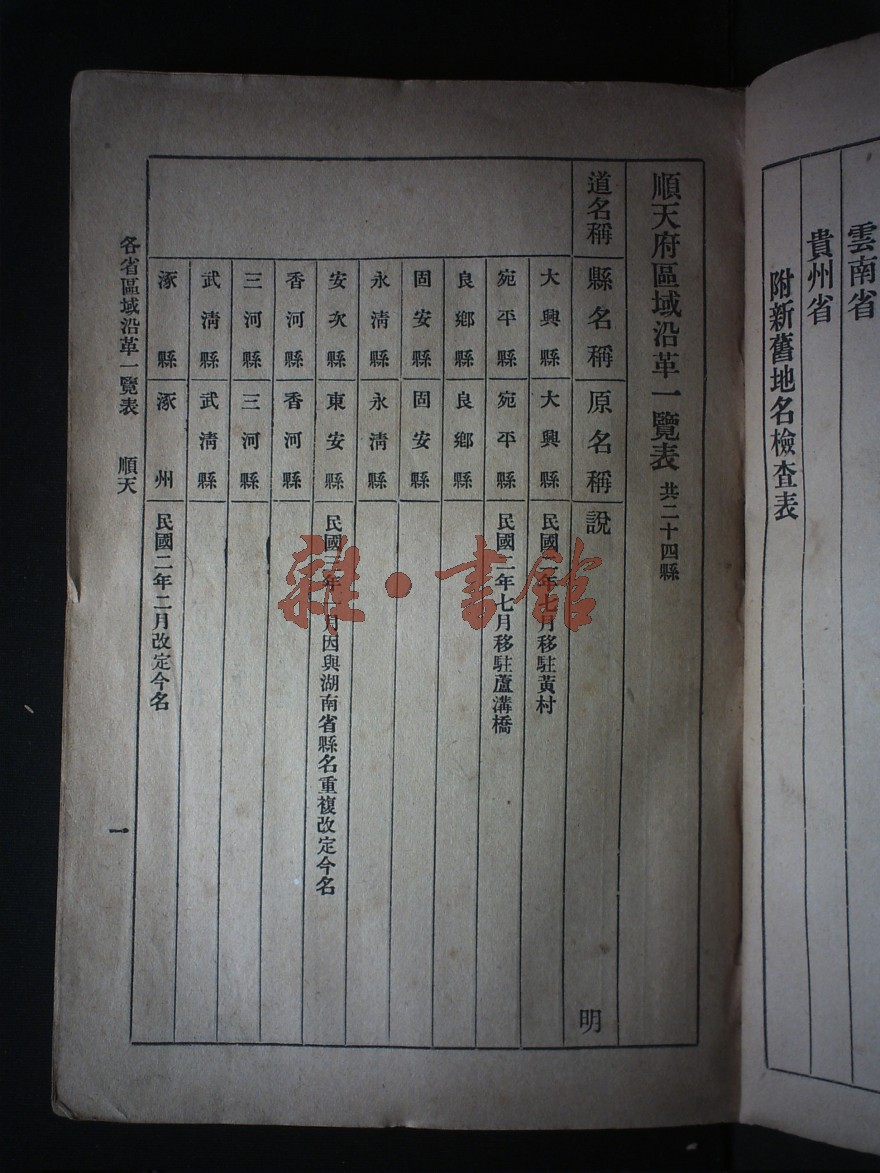 雲南省
貴州省
附新舊地名檢查表
順天府區域沿革一覽表 共二十四縣
道名稱 縣名稱 原名稱 說明
大興縣 大興縣 民國二年七月移駐黃村
宛平縣 宛平縣 民國二年七月移駐蘆溝橋
良鄉縣 良鄉縣
固安縣 固安縣
永清縣 永清縣
安次縣 東安縣 民國三年一月因與湖南省縣名重複改定今名
香河縣 香河縣
三河縣 三河縣
武清縣 武清縣
涿縣 涿州 民國二年二月改定今名
各省區域沿革一覽表 順天 一
雜·書館